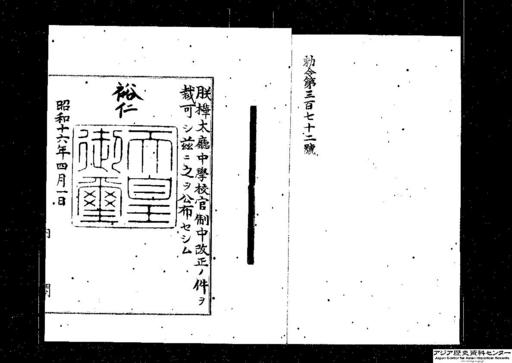 勅令第三百七十二號
朕樺太廳中學校官制中改正ノ件ヲ
裁可シ玆ニ之ヲ公布セシム
裕仁
天皇
御璽
昭和十六年四月一日
内閣
アジア歴史資料センター
Japan Center for Asian Historical Records